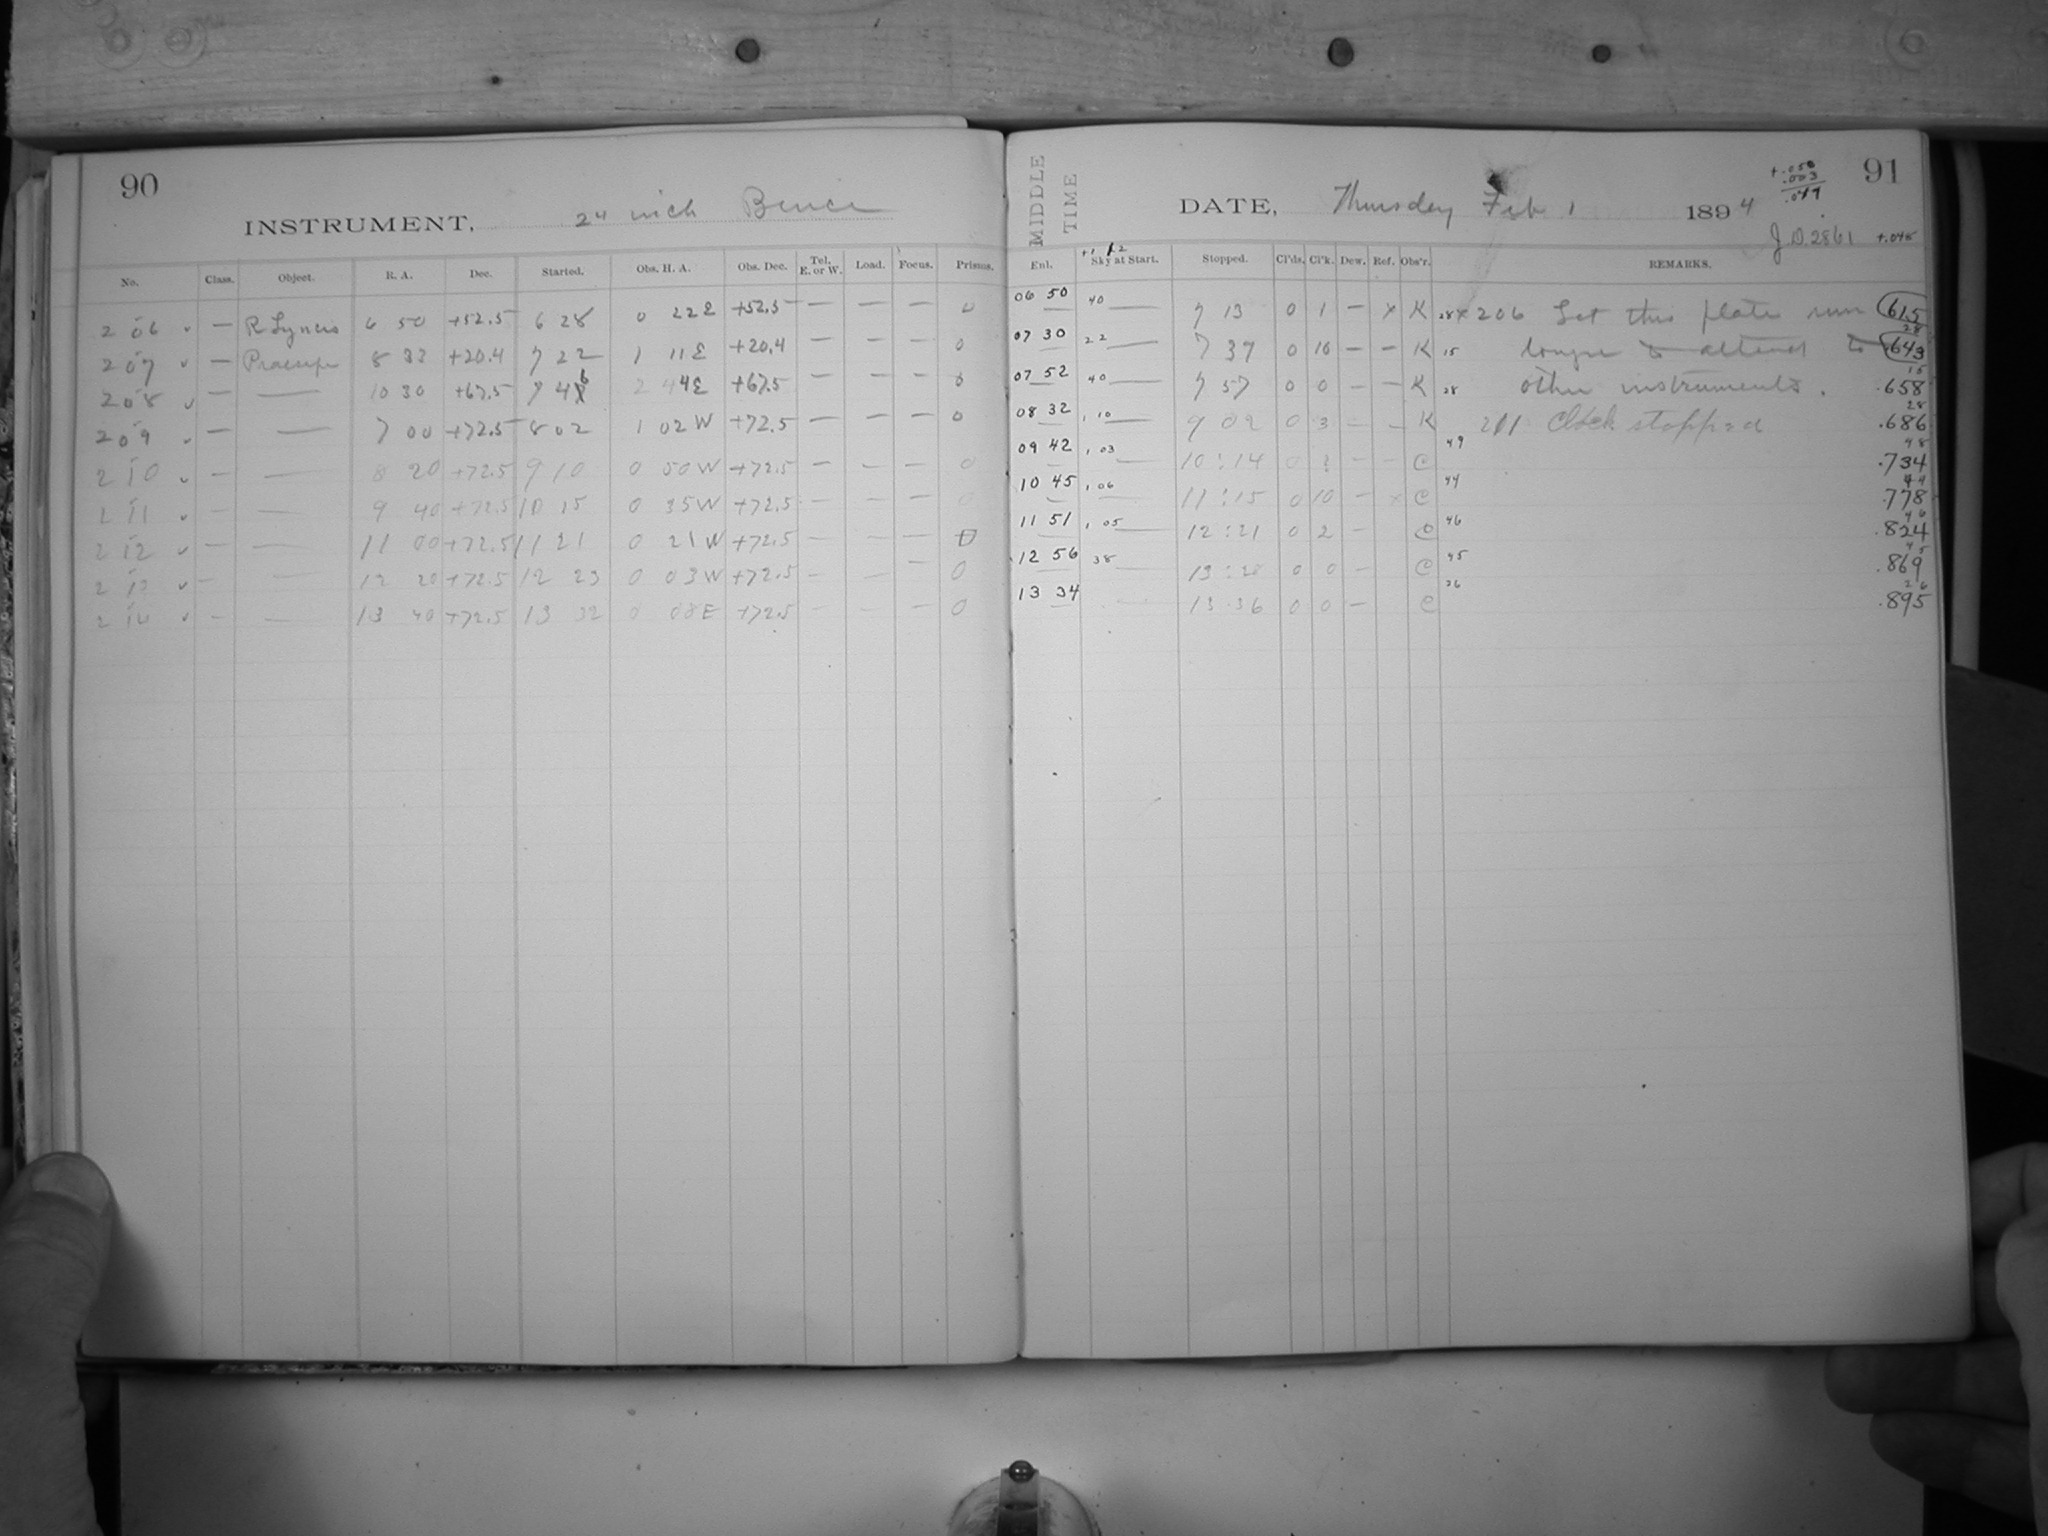 90
INSTRUMENT, 24 inch Bruce
No. Class. Object. R. A. Dec. Started. Obs. H. A. Obs. Dec. Tel. E. or W. Load. Focus. Prisms.
206 ✓ — R Lyncis 6 50 +52.5 6 28 0 22 E +52.5 — — — 0
207 ✓ — Praesepe 8 33 +20.4 7 22 1 11 E +20.4 — — — 0
208 ✓ — — 10 30 +67.5 7 46 2 44 E +67.5 — — — 0
209 ✓ — — 7 00 +72.5 8 02 1 02 W +72.5 — — — 0
210 ✓ — — 8 20 +72.5 9 10 0 50 W +72.5 — — — 0
211 ✓ — — 9 40 +72.5 10 15 0 35 W +72.5 — — — 0
212 ✓ — — 11 00 +72.5 11 21 0 21 W +72.5 — — — 0
213 ✓ — — 12 20 +72.5 12 23 0 03 W +72.5 — — — 0
214 ✓ — — 13 40 +72.5 13 32 0 08 E +72.5 — — — 0
MIDDLE TIME
91
+.050
.003
.047
DATE, Thursday Feb 1 1894
J.D. 2861 +.048
Enl. Sky at Start. Stopped. Cl'ds. Cl'k. Dew. Ref. Obs'r. REMARKS.
06 50 40 — 7 13 0 1 — x K 28 x 206 Let this plate run 615
28
07 30 22 — 7 37 0 10 — — K 15 longer to attend to 643
15
07 52 40 — 7 57 0 0 — — K 28 other instruments. .658
28
08 32 1 10 — 9 02 0 3 — — K 211 Clock stopped .686
09 42 1 03 — 10:14 0 — — C 49 48 .734
10 45 1 06 — 11:15 0 10 — x C 44 44 .778
11 51 1 05 — 12:21 0 2 — C 46 46 .824
12 56 38 — 13:28 0 0 — C 45 45 .869
13 34 13 36 0 0 — C 26 26 .895